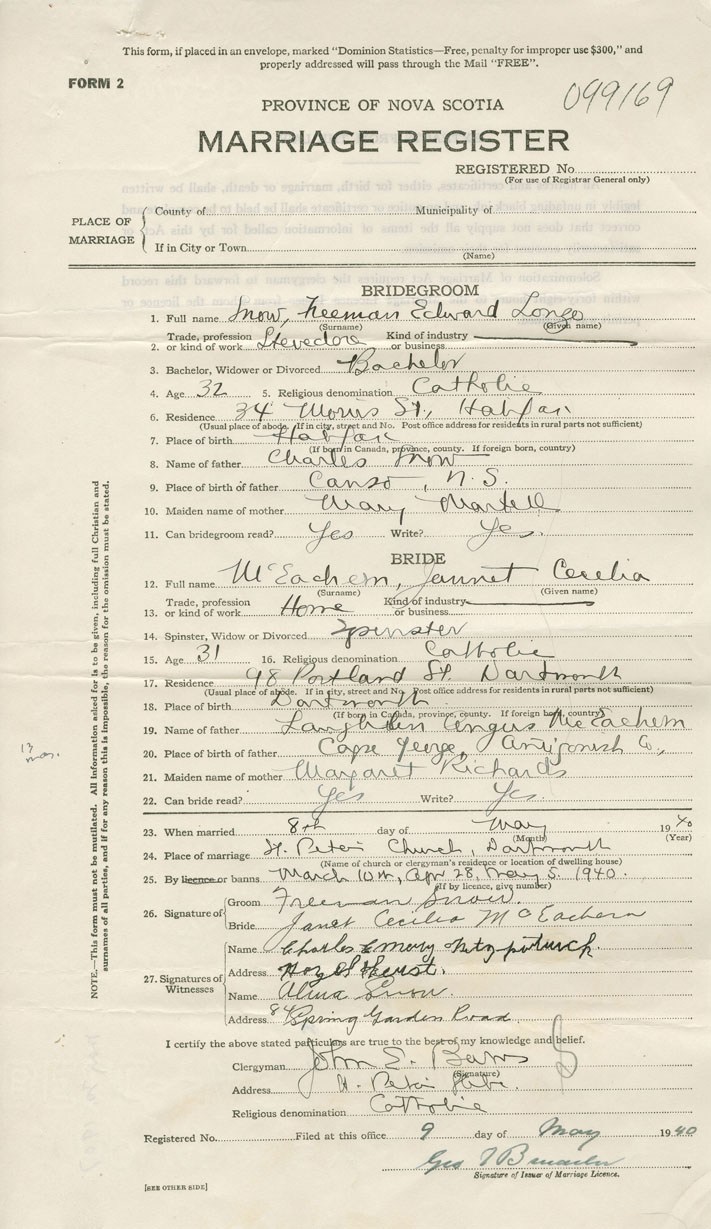 This form, if placed in an envelope, marked "Dominion Statistics—Free, penalty for improper use $300," and
properly addressed will pass through the Mail "FREE".
FORM 2
099169
PROVINCE OF NOVA SCOTIA
MARRIAGE REGISTER
REGISTERED No.
(For use of Registrar General only)
PLACE OF MARRIAGE
County of Municipality of
If in City or Town
(Name)
BRIDEGROOM
1. Full name Snow, Freeman Edward Longo
(Surname) (Given name)
Trade, profession Kind of industry
2. or kind of work Stevedore or business
3. Bachelor, Widower or Divorced Bachelor
4. Age 32 5. Religious denomination Catholic
6. Residence 34 Morris St., Halifax
(Usual place of abode. If in city, street and No. Post office address for residents in rural parts not sufficient)
7. Place of birth Halifax
(If born in Canada, province, county. If foreign born, country)
8. Name of father Charles Snow
9. Place of birth of father Canso, N.S.
10. Maiden name of mother Mary Martell
11. Can bridegroom read? Yes Write? Yes.
BRIDE
12. Full name McEachern, Jannet Cecelia
(Surname) (Given name)
Trade, profession Kind of industry
13. or kind of work Home or business
14. Spinster, Widow or Divorced Spinster
15. Age 31 16. Religious denomination Catholic
17. Residence 98 Portland St. Dartmouth
(Usual place of abode. If in city, street and No. Post office address for residents in rural parts not sufficient)
18. Place of birth Dartmouth
(If born in Canada, province, county. If foreign born, country)
19. Name of father Laughlin Angus McEachern
20. Place of birth of father Cape George, Antigonish Co.,
21. Maiden name of mother Margaret Richards
22. Can bride read? Yes Write? Yes.
23. When married 8th day of May 1940
(Month) (Year)
24. Place of marriage St. Peter's Church, Dartmouth
(Name of church or clergyman's residence or location of dwelling house)
25. By licence or banns March 10th, Apr 28, May 5. 1940.
(If by licence, give number)
26. Signature of
Groom Freeman Snow.
Bride Janet Cecilia McEachern
27. Signatures of Witnesses
Name Charles Emery Fitzpatrick.
Address
Name Alma Snow.
Address 84 Spring Garden Road
I certify the above stated particulars are true to the best of my knowledge and belief.
Clergyman John E. Burns
(Signature)
Address St. Peter's Glebe.
Religious denomination Catholic
Registered No. Filed at this office 9 day of May 1940
Geo
Signature of Issuer of Marriage Licence.
[SEE OTHER SIDE]
NOTE.—This form must not be mutilated. All information asked for is to be given, including full Christian and
surnames of all parties, and if for any reason this is impossible, the reason for the omission must be stated.